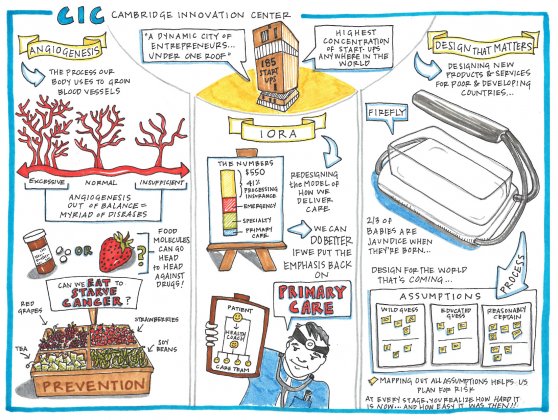 CIC CAMBRIDGE INNOVATION CENTER
"A DYNAMIC CITY OF
ENTREPRENEURS...
UNDER ONE ROOF"
185
START
UPS
HIGHEST
CONCENTRATION
OF START-UPS
ANYWHERE IN THE
WORLD
ANGIOGENESIS
THE PROCESS OUR
BODY USES TO GROW
BLOOD VESSELS
EXCESSIVE NORMAL INSUFFICIENT
ANGIOGENESIS
OUT OF BALANCE =
MYRIAD OF DISEASES
OR
??
FOOD
MOLECULES
CAN GO
HEAD
to HEAD
AGAINST
DRUGS!
CAN WE EAT TO
STARVE
CANCER?
RED
GRAPES
STRAWBERRIES
TEA
SOY
BEANS
PREVENTION
IORA
THE NUMBERS
$550
41%
PROCESSING
INSURANCE
EMERGENCY
SPECIALTY
PRIMARY
CARE
REDESIGNING
the MODEL OF
HOW WE
DELIVER
CARE
WE CAN
DO BETTER
IF WE PUT THE
EMPHASIS BACK
ON
PRIMARY
CARE
PATIENT
HEALTH
COACH
CARE TEAM
DESIGN THAT MATTERS
DESIGNING NEW
PRODUCTS & SERVICES
FOR POOR & DEVELOPING
COUNTRIES...
FIREFLY
2/3 OF
BABIES ARE
JAUNDICE WHEN
THEY'RE BORN...
DESIGN FOR THE WORLD
THAT'S COMING...
PROCESS
ASSUMPTIONS
WILD GUESS
EDUCATED
GUESS
REASONABLY
CERTAIN
MAPPING OUT ALL ASSUMPTIONS HELPS US
PLAN FOR RISK
AT EVERY STAGE, YOU REALIZE HOW HARD IT
IS NOW... AND HOW EASY IT WAS THEN!!